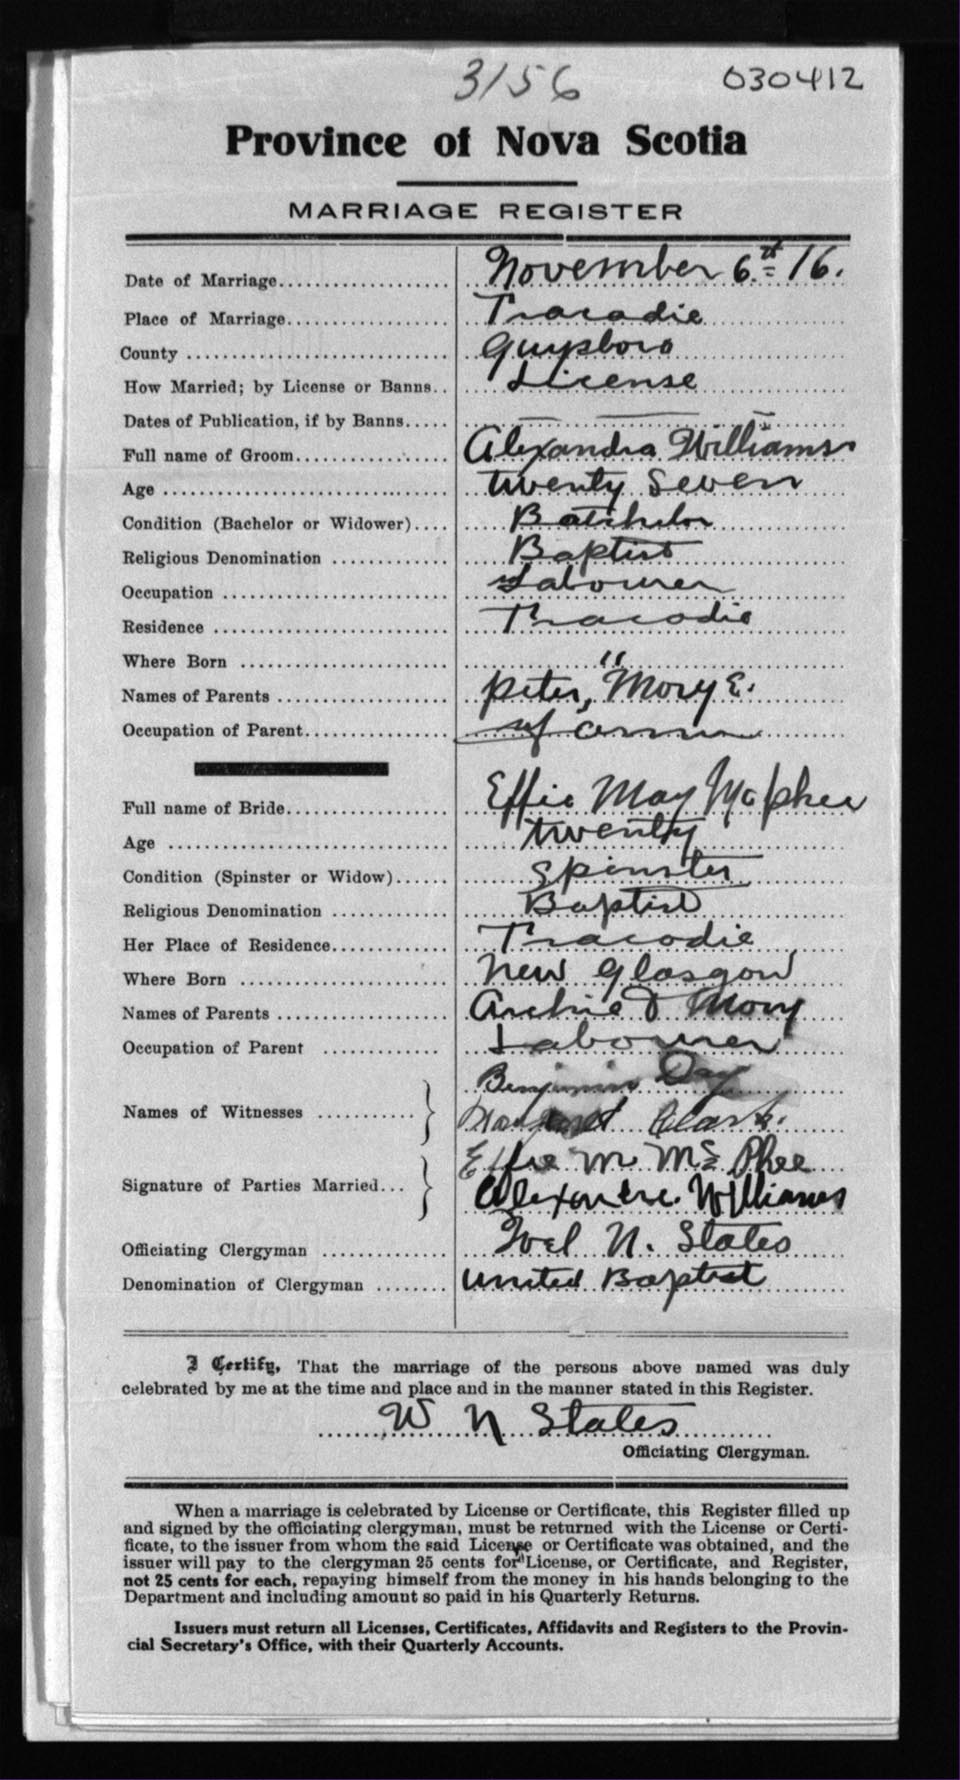 3156
030412
Province of Nova Scotia
MARRIAGE REGISTER
Date of Marriage November 6th 16.
Place of Marriage Tracadie
County Guysboro
How Married; by License or Banns License
Dates of Publication, if by Banns
Full name of Groom Alexandra Williams
Age twenty Seven
Condition (Bachelor or Widower) Batchelor
Religious Denomination Baptist
Occupation Labourer
Residence Tracodie
Where Born "
Names of Parents Peter, Mary E.
Occupation of Parent
Full name of Bride Effie May McPhee
Age twenty
Condition (Spinster or Widow) Spinster
Religious Denomination Baptist
Her Place of Residence Tracodie
Where Born New Glasgow
Names of Parents Archie & Mary
Occupation of Parent Labourer
Benjamin Day
Names of Witnesses
Clark.
Effie M McPhee
Signature of Parties Married
Williams
Officiating Clergyman N. States
Denomination of Clergyman United Baptist
I Certify, That the marriage of the persons above named was duly
celebrated by me at the time and place and in the manner stated in this Register.
W N States
Officiating Clergyman.
When a marriage is celebrated by License or Certificate, this Register filled up
and signed by the officiating clergyman, must be returned with the License or Certi-
ficate, to the issuer from whom the said License or Certificate was obtained, and the
issuer will pay to the clergyman 25 cents for License, or Certificate, and Register,
not 25 cents for each, repaying himself from the money in his hands belonging to the
Department and including amount so paid in his Quarterly Returns.
Issuers must return all Licenses, Certificates, Affidavits and Registers to the Provin-
cial Secretary's Office, with their Quarterly Accounts.